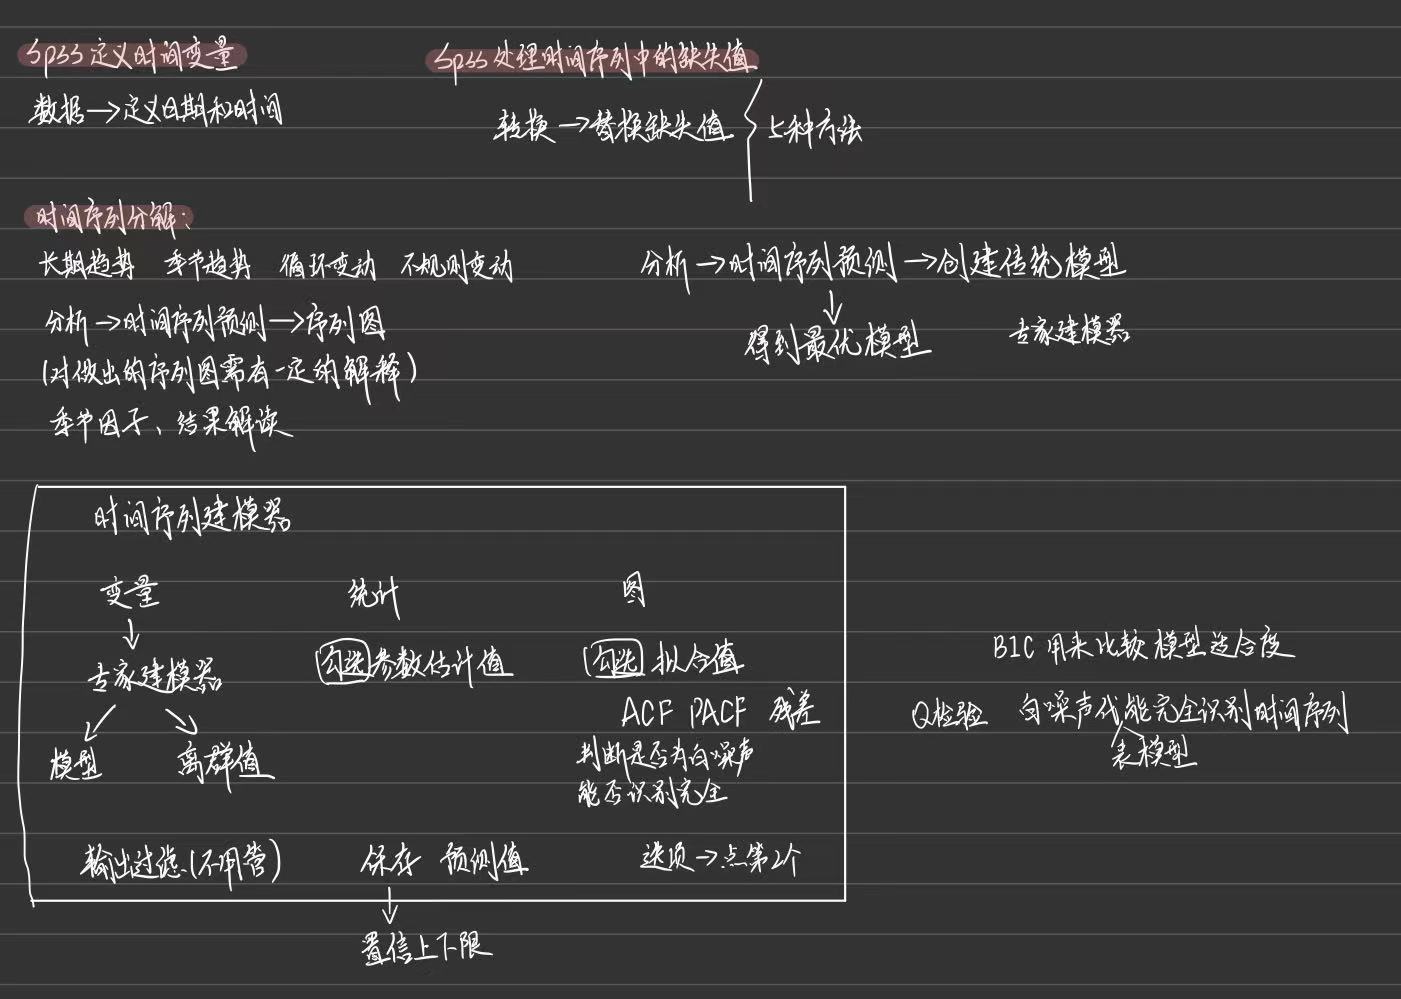 Spss定义时间变量
数据→定义日期和时间
Spss处理时间序列中的缺失值
转换→替换缺失值 5种方法
时间序列分解:
长期趋势 季节趋势 循环变动 不规则变动
分析→时间序列预测→序列图
(对做出的序列图需有一定的解释)
季节因子、结果解读
分析→时间序列预测→创建传统模型
↓
得到最优模型 专家建模器
时间序列建模器
变量 统计 图
↓
专家建模器 勾选 参数估计值 勾选 拟合值
模型 离群值
ACF PACF 残差
判断是否为白噪声
能否识别完全
输出过滤(不用管) 保存 预测值 选项→点第2个
↓
置信上下限
BIC 用来比较模型适合度
Q检验 白噪声代能完全识别时间序列
表模型